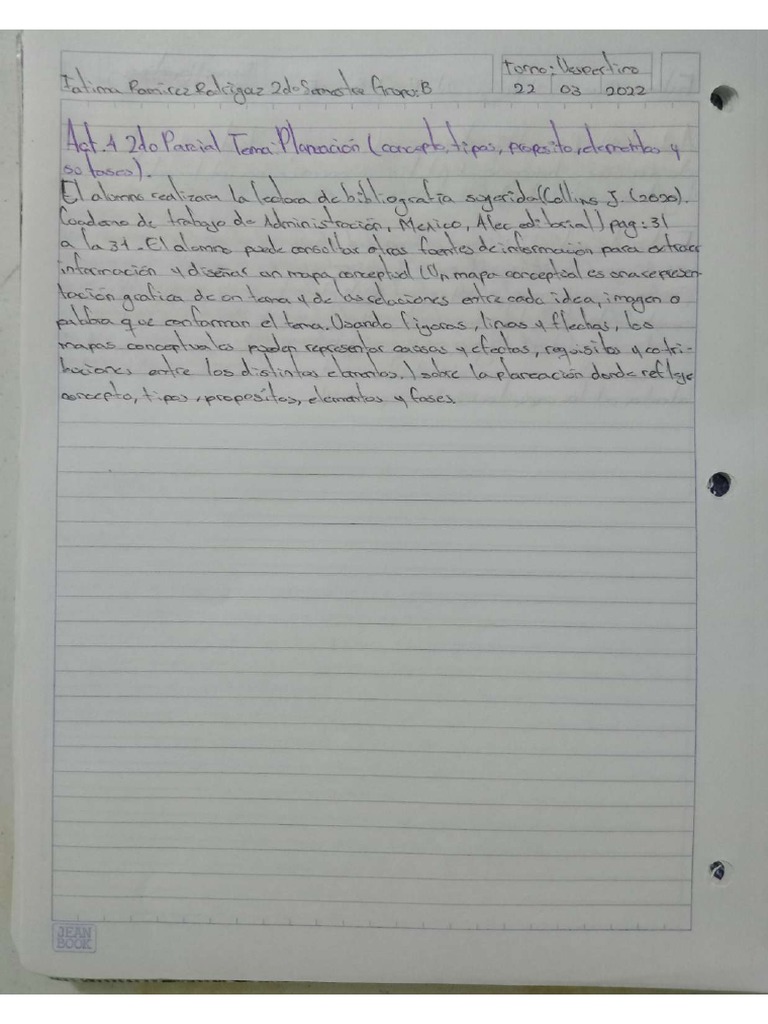 Fatima Ramirez Rodrigaz 2do Semestre Grupo:B
Torno: Vespertino
22 03 2022
Act. 1 2do Parcial Tema: Planeación (concepto, tipos, proposito, elementos y
so fases).
El alumno realizara la lectora de bibliografia sugerida (Collins J. (2020).
Coaderno de trabajo de Administración, Mexico, Alec editorial) pag: 31
a la 31. El alumno puede consoltar otras fuentes de información para extraer
información y diseñar un mapa conceptual (Un mapa conceptual es una represen-
tación grafica de un tema y de las relaciones entre cada idea, imagen o
palabra que conforman el tema. Usando figuras, lineas y flechas, los
mapas conceptuales pueden representar causas y efectos, requisitos y cotri-
buciones entre los distintos elementos.) sobre la planeación donde refleje
concepto, tipos, propositos, elementos y fases.
JEAN
BOOK